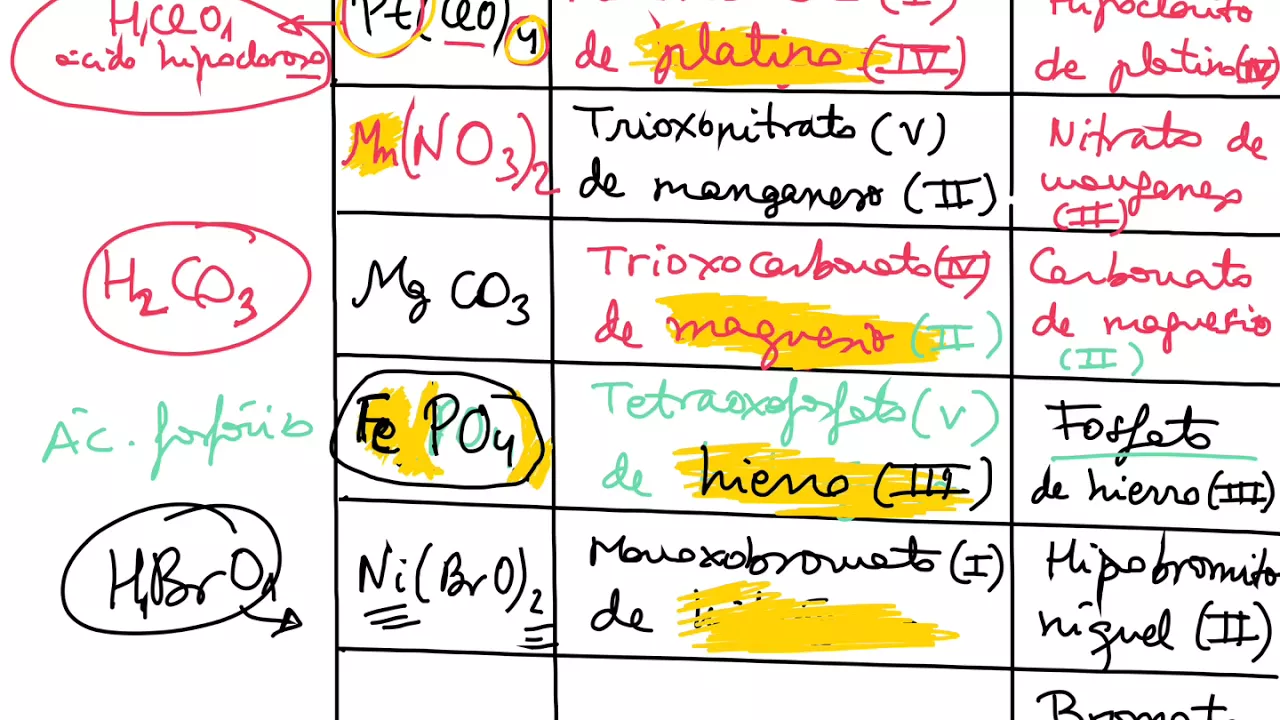 H₁ClO₁
ácido hipocloroso
Pt(ClO)₄
(I)
de platino (IV)
Hipoclorito
de platino (IV)
Mn(NO₃)₂
Trioxonitrato (V)
de manganeso (II)
Nitrato de
manganeso
(II)
H₂CO₃
MgCO₃
Trioxocarbonato (IV)
de magnesio (II)
Carbonato
de magnesio
(II)
Ác. fosfórico
FePO₄
Tetraoxofosfato (V)
de hierro (III)
Fosfato
de hierro (III)
H₁BrO₁
Ni(BrO)₂
Monoxobromato (I)
de
Hipobromito
níquel (II)